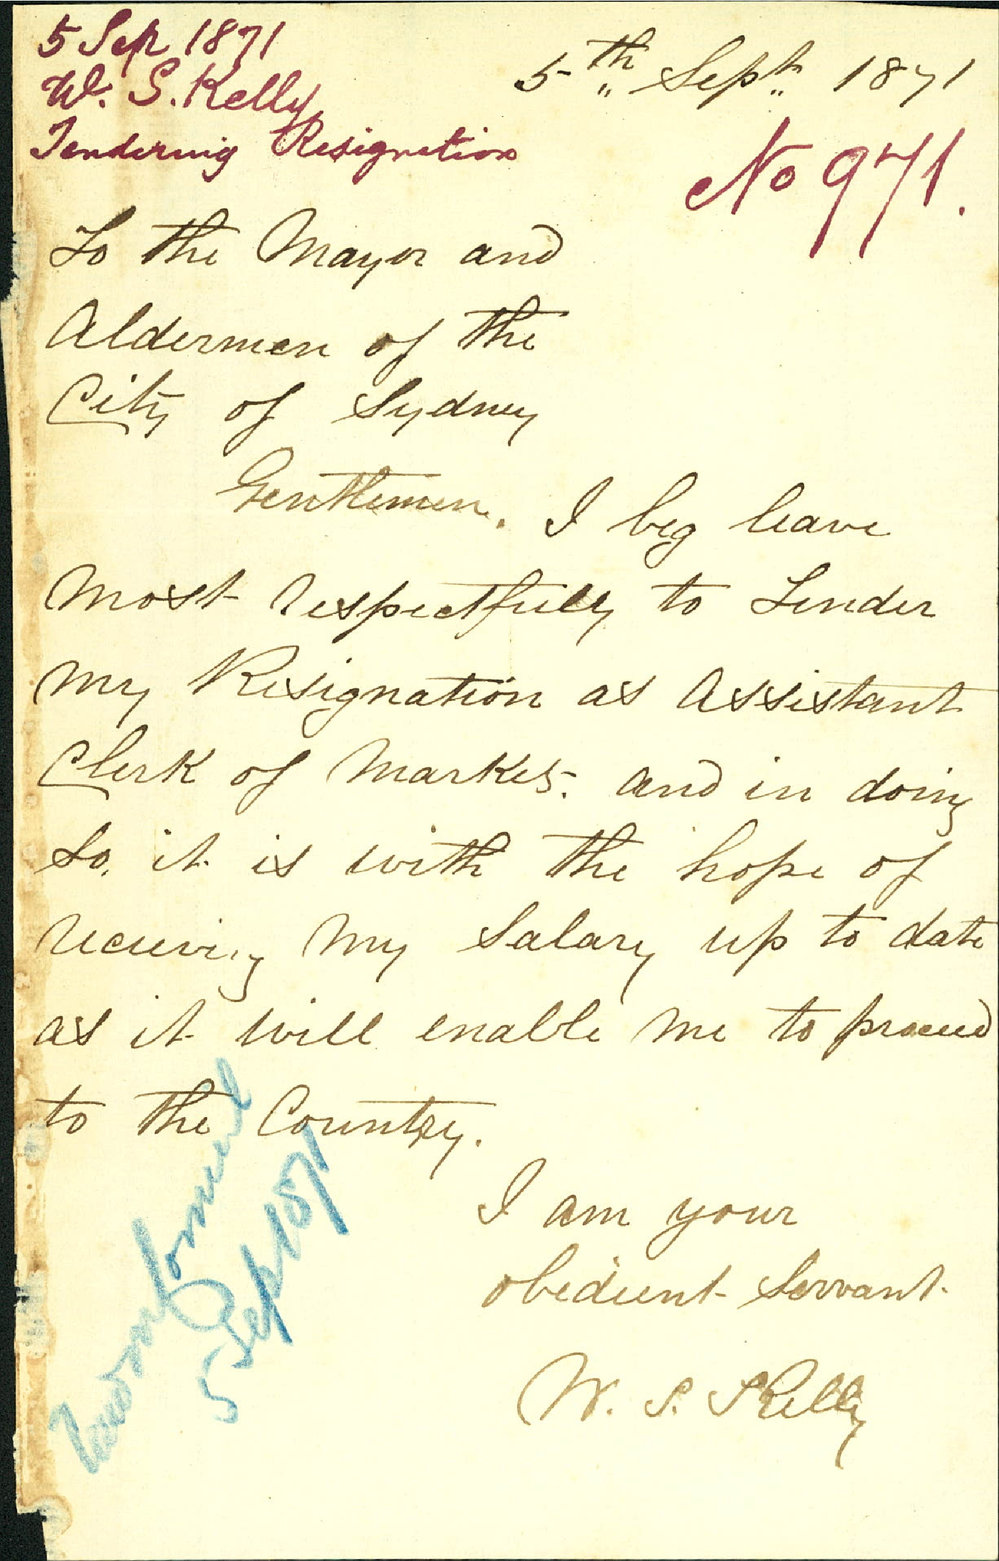 5 Sep 1871
W. S. Kelly
Tendering Resignation
5th Sept. 1871
No 971.
To the Mayor and
Aldermen of the
City of Sydney
Gentlemen. I beg leave
most respectfully to Tender
my Resignation as Assistant
Clerk of Markets. and in doing
So, it is with the hope of
receiving my Salary up to date
as it will enable me to proceed
to the Country.
I am your
obedient Servant.
W. S. Kelly
5 Sep 1871